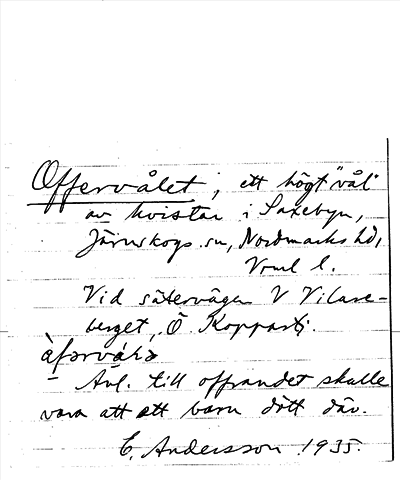 Offervålet, ett högt "vål"
av kvistar i Saxebyn,
Järnskogs sn, Nordmarks hd,
Vrml l.
Vid sätervägen V Vilare-
berget, Ö Koppartj.
Anl. till offrandet skulle
vara att ett barn dött där.
C. Andersson 1935.